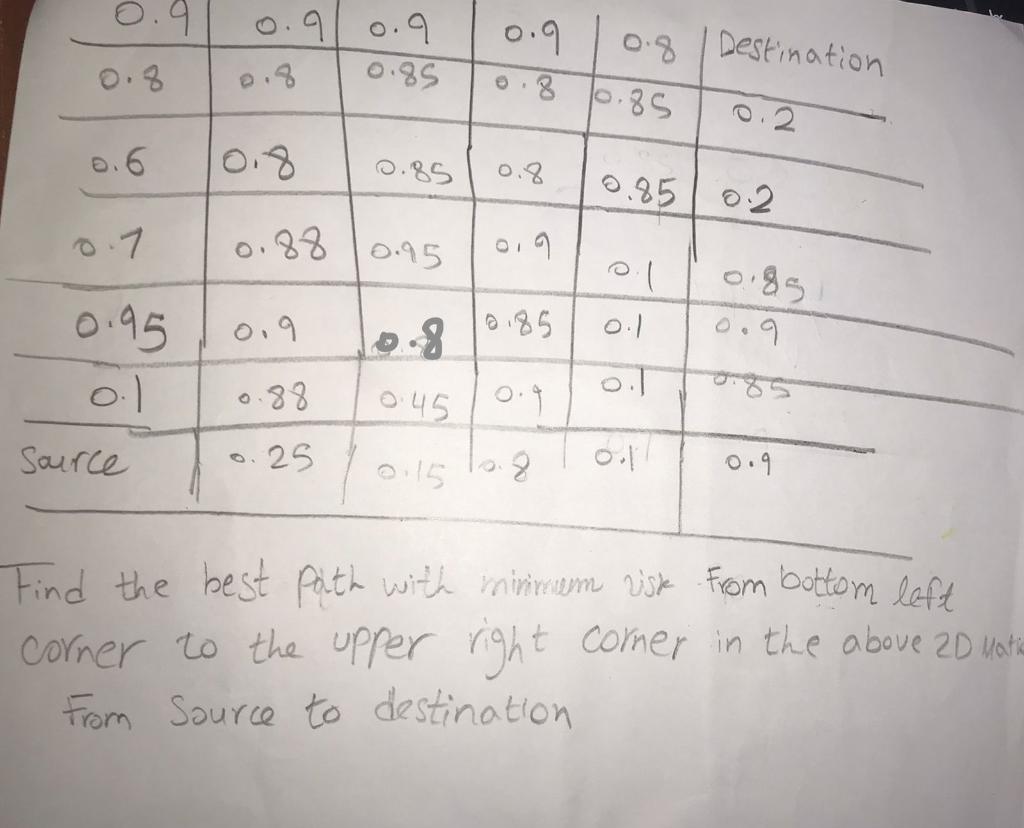 0.9 0.9 0.9 0.9 0.8 Destination
0.8 0.8 0.85 0.8 0.85 0.2
0.6 0.8 0.85 0.8 0.85 0.2
0.7 0.88 0.95 0.9 0.1 0.85
0.95 0.9 0.8 0.85 0.1 0.9
0.1 0.88 0.45 0.9 0.1 0.85
Source 0.25 0.15 0.8 0.1 0.9
Find the best path with minimum risk From bottom left
corner to the upper right corner in the above 2D
From Source to destination